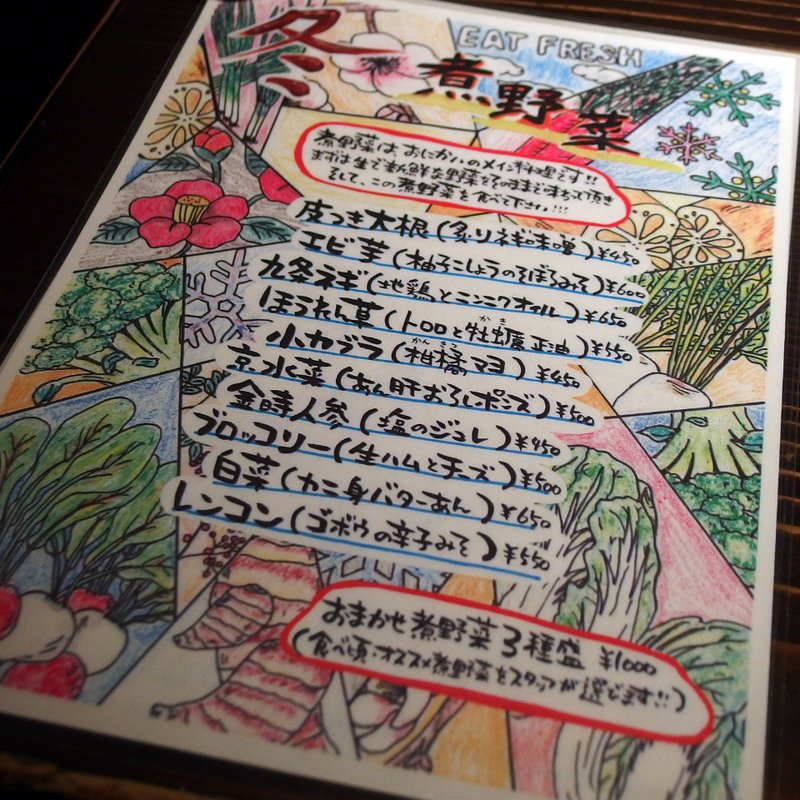 冬
EAT FRESH
煮野菜
煮野菜は、おにかいのメイン料理です!!
まずは生で新鮮な野菜をそのまま味わって頂き
そして、この煮野菜を食べて下さい!!!
皮つき大根(炙りネギ味噌)¥450
エビ芋(柚子こしょうのそぼろみそ)¥600
九条ネギ(地鶏とニンニクオイル)¥650
ほうれん草(トロロと牡蠣正油)¥550
かき
小カブラ(柑橘マヨ)¥450
かんきつ
京水菜(あん肝おろしポンズ)¥500
金時人参(塩のジュレ)¥450
ブロッコリー(生ハムとチーズ)¥500
白菜(カニ身バターあん)¥650
レンコン(ゴボウの辛子みそ)¥550
おまかせ煮野菜3種盛 ¥1000
(食べ頃・オススメ煮野菜をスタッフが選びます!!)